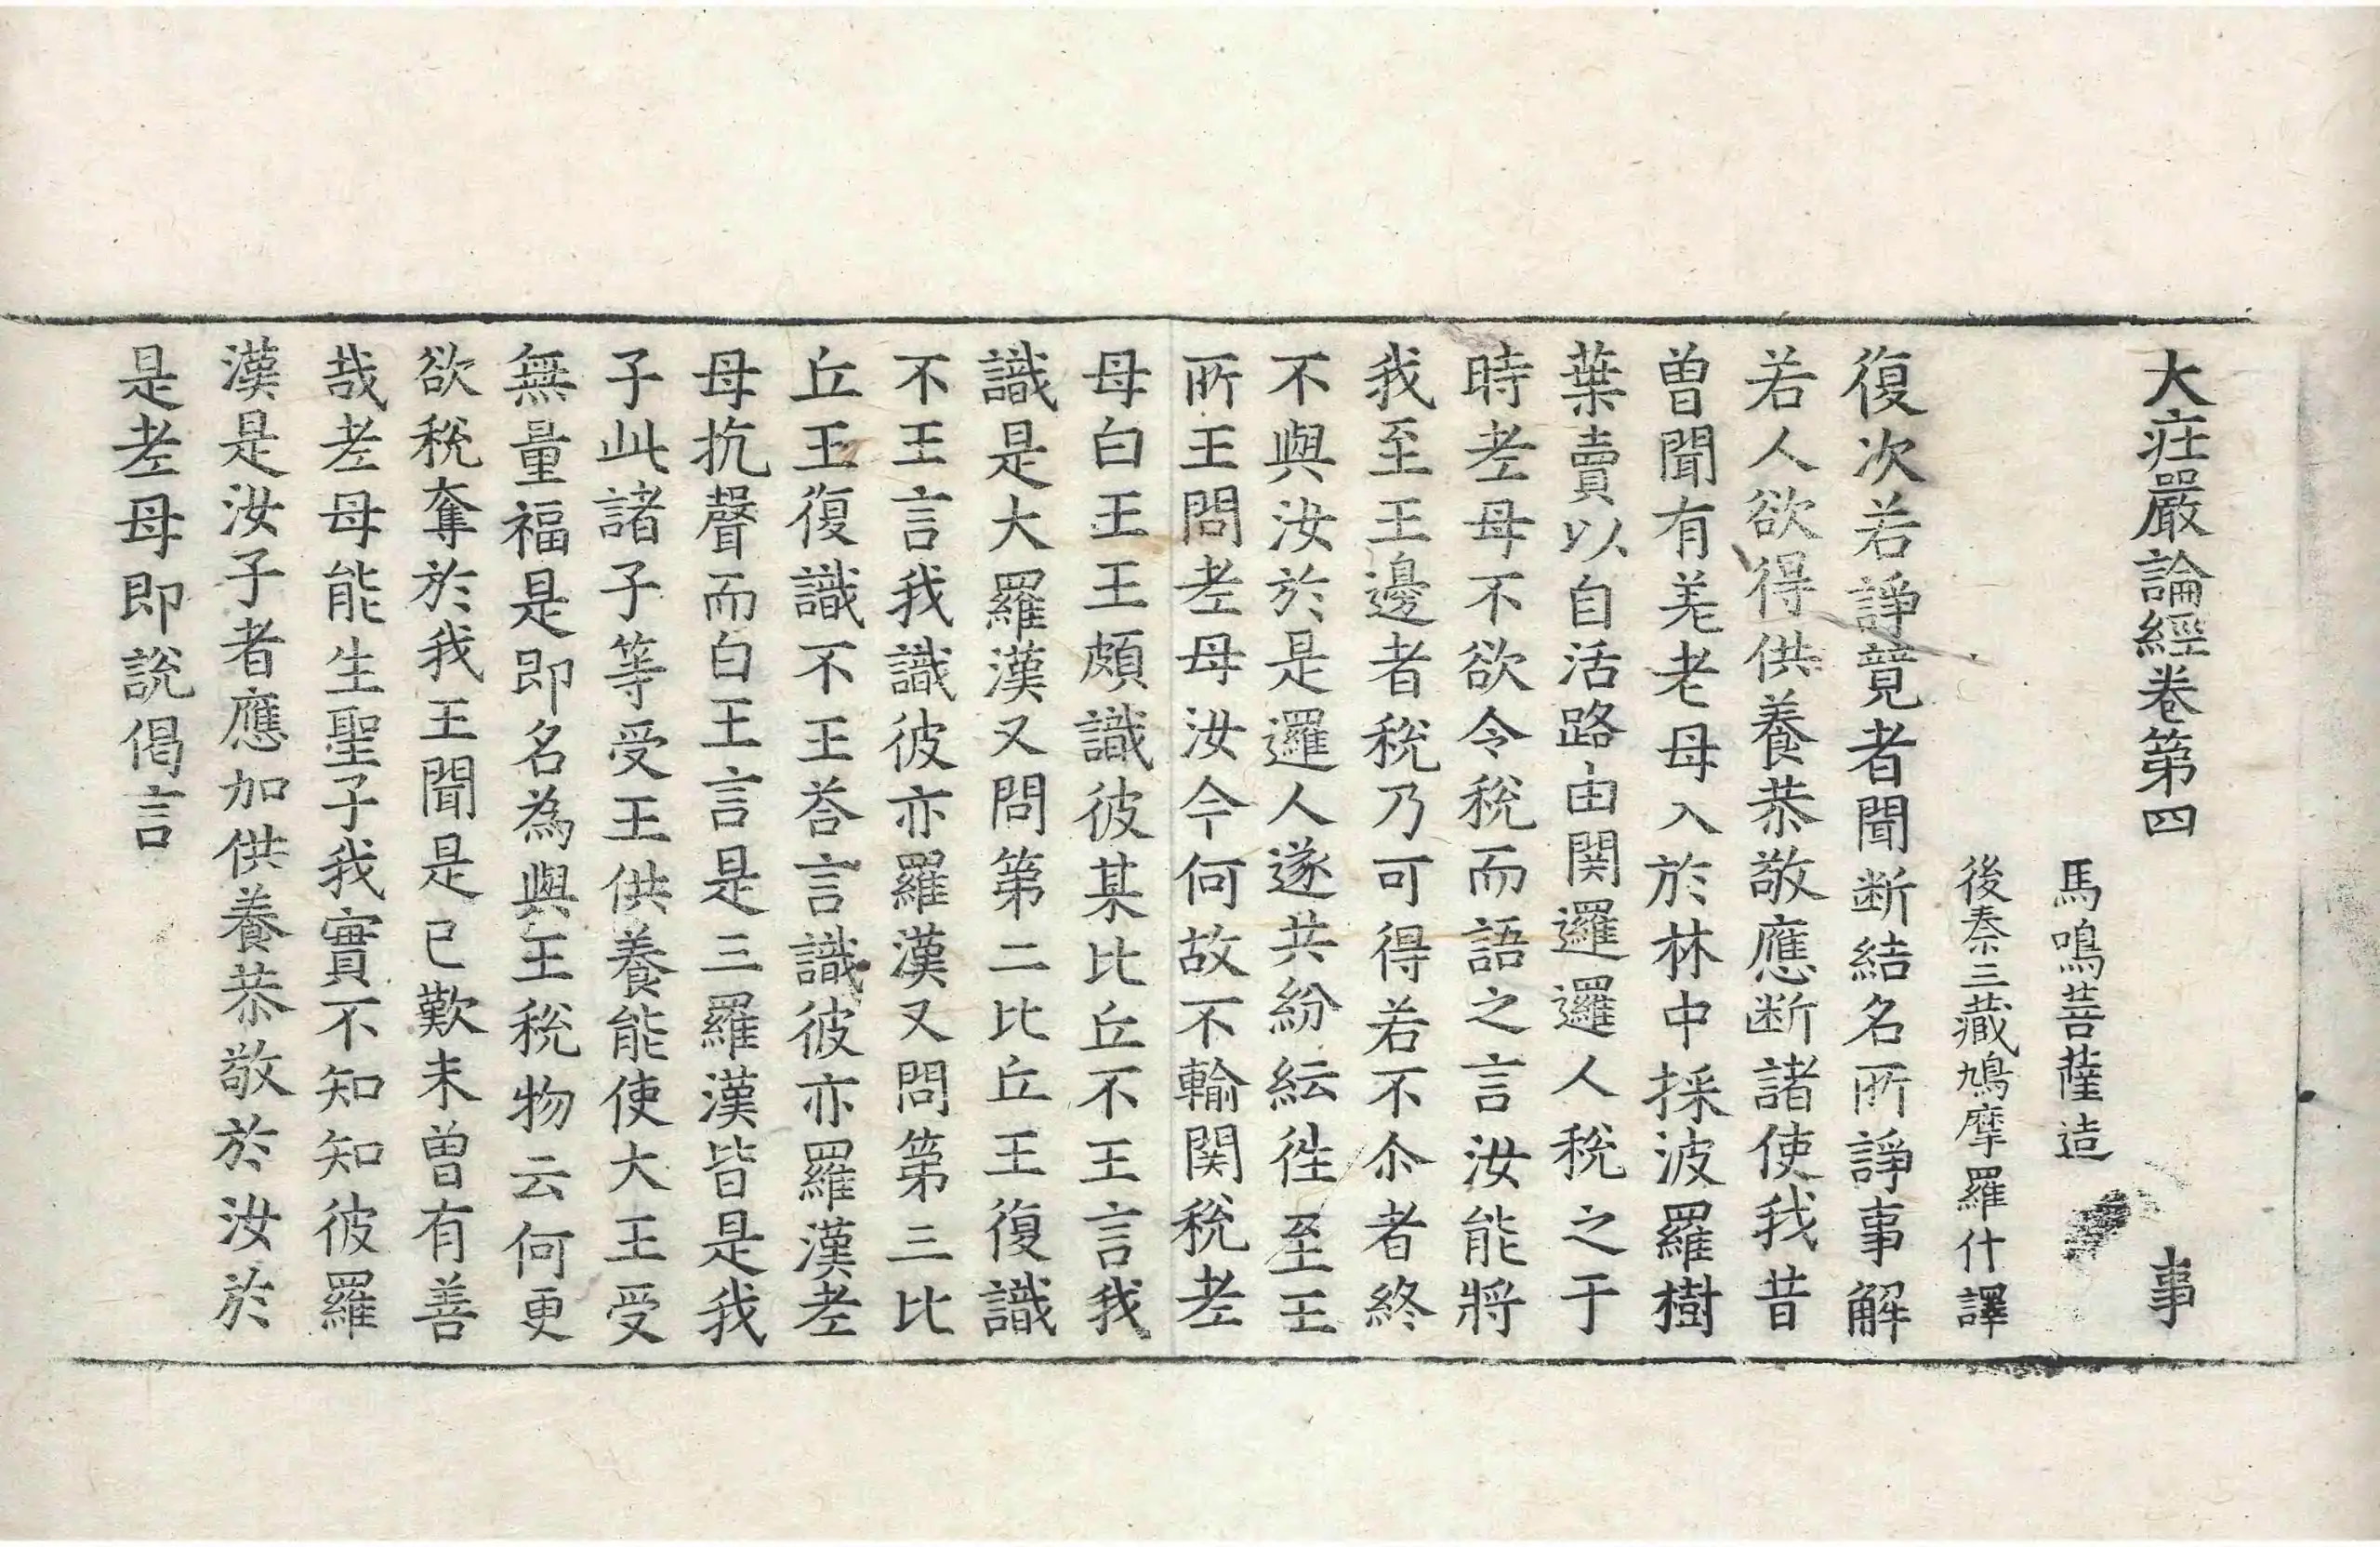 大庄嚴論經卷第四 事
馬鳴菩薩造
後秦三藏鳩摩羅什譯
復次若諍競者聞断結名所諍事解
若人欲得供養恭敬應断諸使我昔
曾聞有差老母入於林中採波羅樹
葉賣以自活路由関邏邏人稅之于
時老母不欲令稅而語之言汝能將
我至王邊者稅乃可得若不尒者終
不與汝於是邏人遂共紛紜徃至王
所王問老母汝今何故不輸関稅老
母白王王頗識彼某比丘不王言我
識是大羅漢又問第二比丘王復識
不王言我識彼亦羅漢又問第三比
丘王復識不王荅言識彼亦羅漢老
母抗聲而白王言是三羅漢皆是我
子此諸子等受王供養能使大王受
無量福是即名為與王稅物云何更
欲稅奪於我王聞是已歎未曾有善
哉老母能生聖子我實不知知彼羅
漢是汝子者應加供養恭敬於汝於
是老母即說偈言